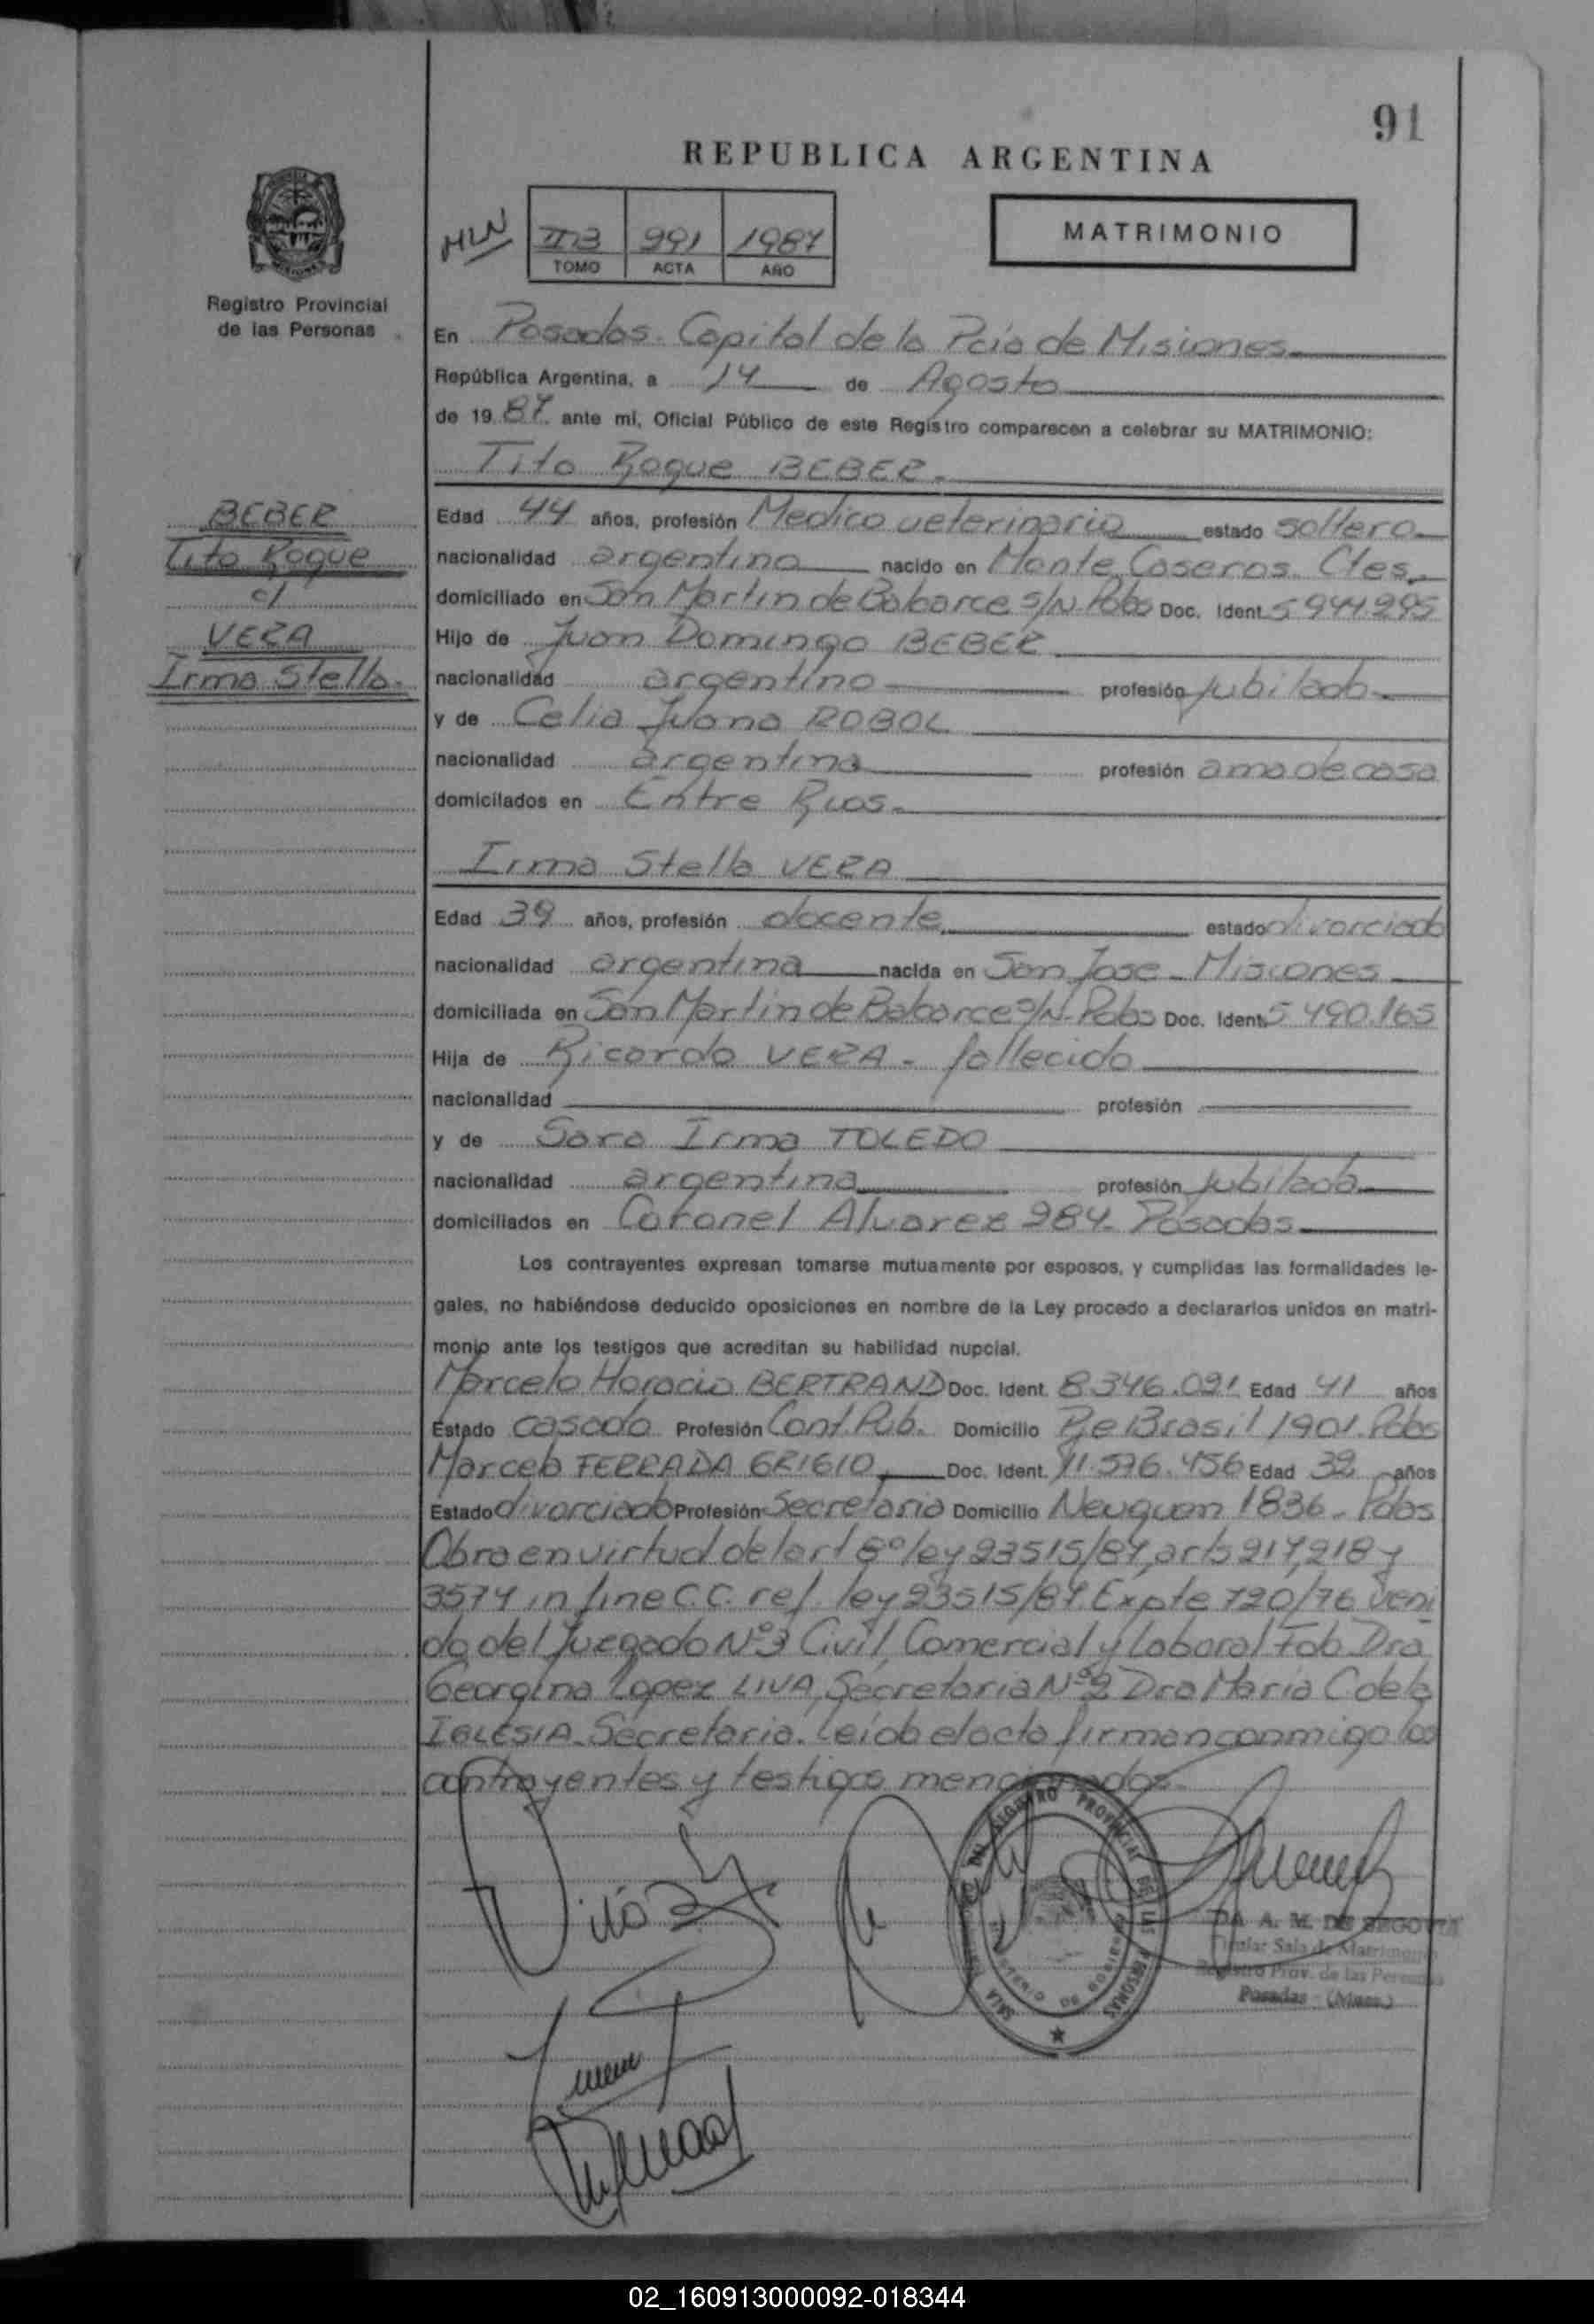 91
REPUBLICA ARGENTINA
MATRIMONIO
HLN
991 1987
TOMO ACTA AÑO
Registro Provincial
de las Personas
En Posadas. Capital de la Pcia de Misiones
República Argentina, a 14 de Agosto
de 1987 ante mí, Oficial Público de este Registro comparecen a celebrar su MATRIMONIO:
Tito Roque BEBER
BEBER
Tito Roque
c/
VERA
Irma Stella
Edad 44 años, profesión Medico veterinario estado soltero
nacionalidad argentino nacido en Monte Caseros. Ctes.
domiciliado en San Martin de Babarce s/N Pdas Doc. Ident. 5944295
Hijo de Juan Domingo BEBER
nacionalidad argentino profesión jubilado
y de Celia Juana ROBOL
nacionalidad argentina profesión ama de casa
domicilados en Entre Rios.
Irma Stella VERA
Edad 39 años, profesión docente estado divorciada
nacionalidad argentina nacida en San Jose - Misiones
domiciliada en San Martin de Babarce s/N- Pdas Doc. Ident. 5490.165
Hija de Ricardo VERA - fallecido
nacionalidad profesión
y de Sara Irma TOLEDO
nacionalidad argentina profesión jubilada
domiciliados en Coronel Alvarez 984- Posadas
Los contrayentes expresan tomarse mutuamente por esposos, y cumplidas las formalidades le-
gales, no habiéndose deducido oposiciones en nombre de la Ley procedo a declararlos unidos en matri-
monio ante los testigos que acreditan su habilidad nupcial.
Marcelo Horacio BERTRAND Doc. Ident. 8346.091 Edad 41 años
Estado casado Profesión Cont. Pub. Domicilio Pje Brasil 1901. Pdas
Marcela FERRADA GRIGIO Doc. Ident. 11.576.456 Edad 32 años
Estado divorciada Profesión Secretaria Domicilio Neuquen 1836 - Pdas
Obra en virtud del art 8º ley 23515/87, arts 217, 218 y
3574 in fine C.C. ref. ley 23515/87. Expte 720/76 veni
do del Juzgado Nº3 Civil, Comercial y Laboral Fdo Dra
Georgina Lopez LIVA, Secretaria Nº2 Dra Maria
IGLESIA. Secretaria. Leida el acta firman conmigo los
contrayentes y testigos mencionados.
REGISTRO PROVINCIAL DE LAS PERSONAS
MINISTERIO DE GOBIERNO
A. M. DE SEGOVIA
Titular Sala de Matrimonio
Registro Prov. de las Personas
Posadas - (Mnes.)
02_160913000092-018344